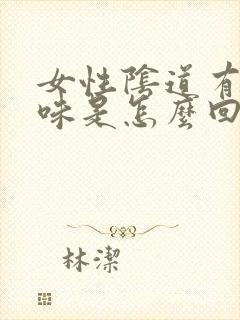 女性陰道有
味是怎麼回
林潔